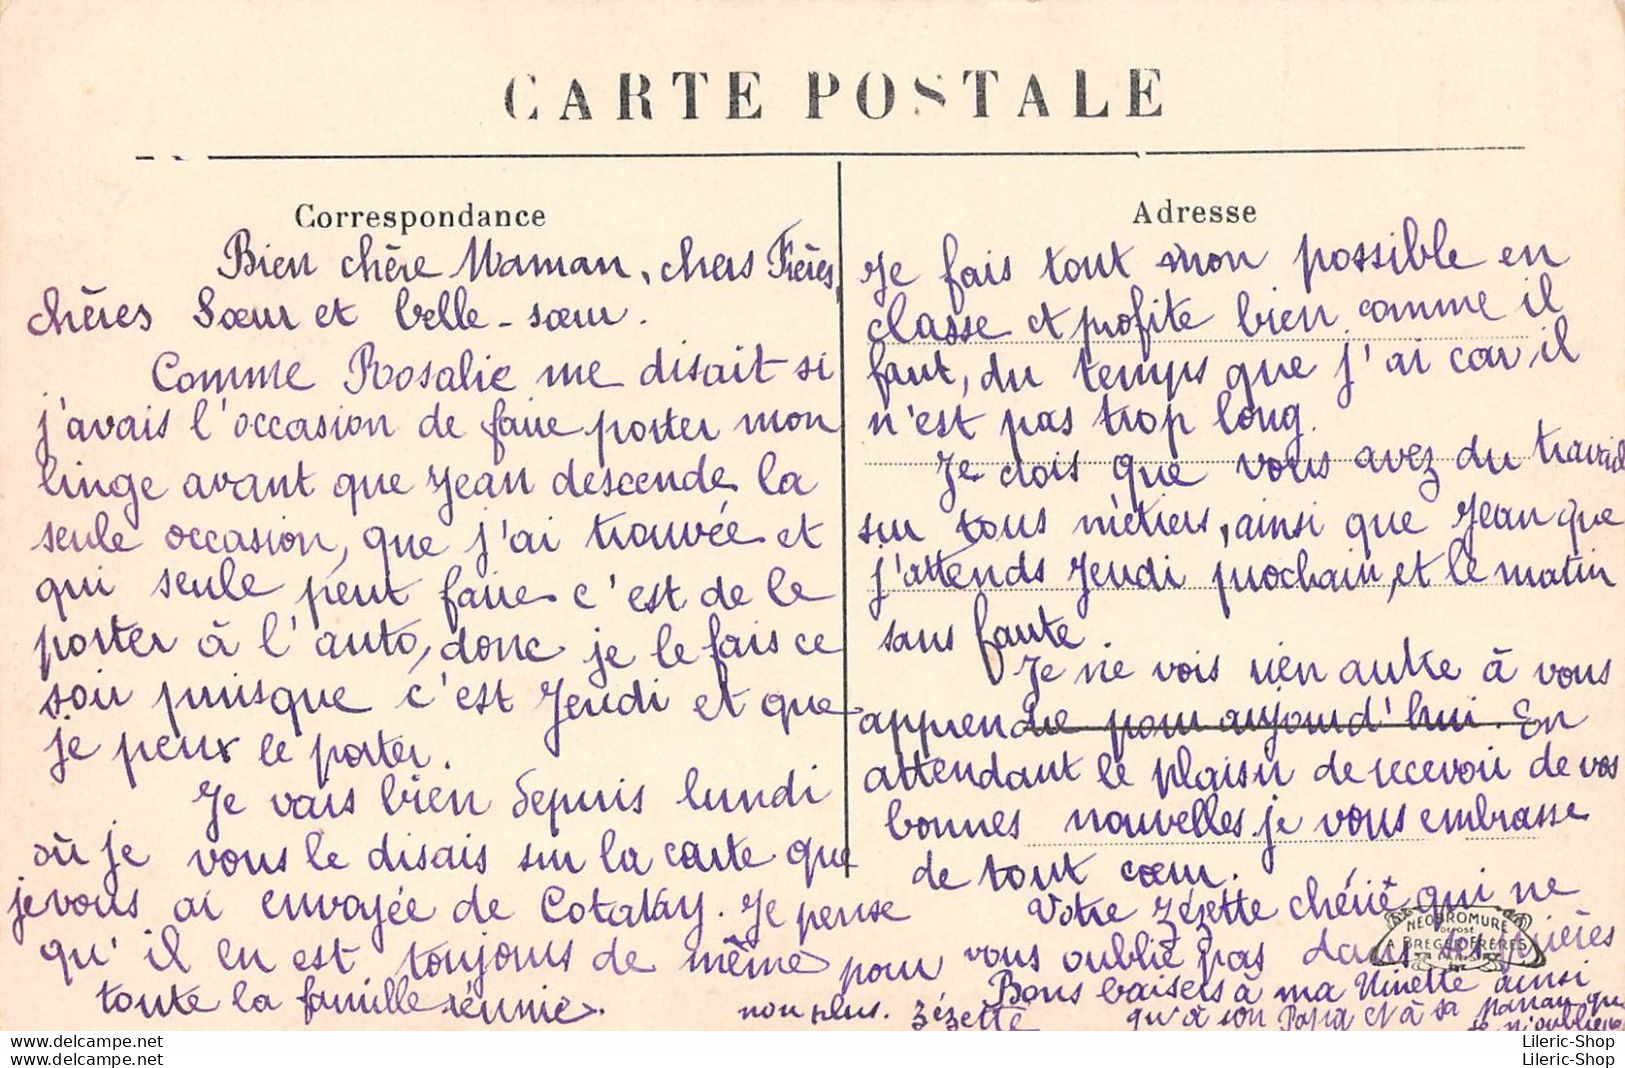 CARTE POSTALE
Correspondance
Bien chère Maman, chers Frères,
chères Sœur et belle-sœur.
Comme Rosalie me disait si
j'avais l'occasion de faire porter mon
linge avant que Jean descende la
seule occasion, que j'ai trouvée et
qui seule peut faire c'est de le
porter à l'auto, donc je le fais ce
soir puisque c'est Jeudi et que
je peux le porter.
Je vais bien depuis lundi
où je vous le disais sur la carte que
je vous ai envoyée de . Je pense
qu'il en est toujours de même pour
toute la famille réunie.
Adresse
Je fais tout mon possible en
classe et profite bien comme il
faut, du temps que j'ai car il
n'est pas trop long.
Je crois que vous avez du travail
sur tous métiers, ainsi que Jean que
j'attends Jeudi prochain, et le matin
sans faute.
Je ne vois rien autre à vous
apprendre pour aujourd'hui. En
attendant le plaisir de recevoir de vos
bonnes nouvelles je vous embrasse
de tout cœur.
Votre Zézette chérie qui ne
vous oublie pas dans ses prières
non plus. Zézette
Bons baisers à ma Ninette ainsi
qu'à son Papa et à sa maman que
je n'oublie
NEOBROMURE
DEPOSE
A BREGER FRERES
PARIS
Lileric-Shop
Lileric-Shop
Lileric-Shop
Lileric-Shop